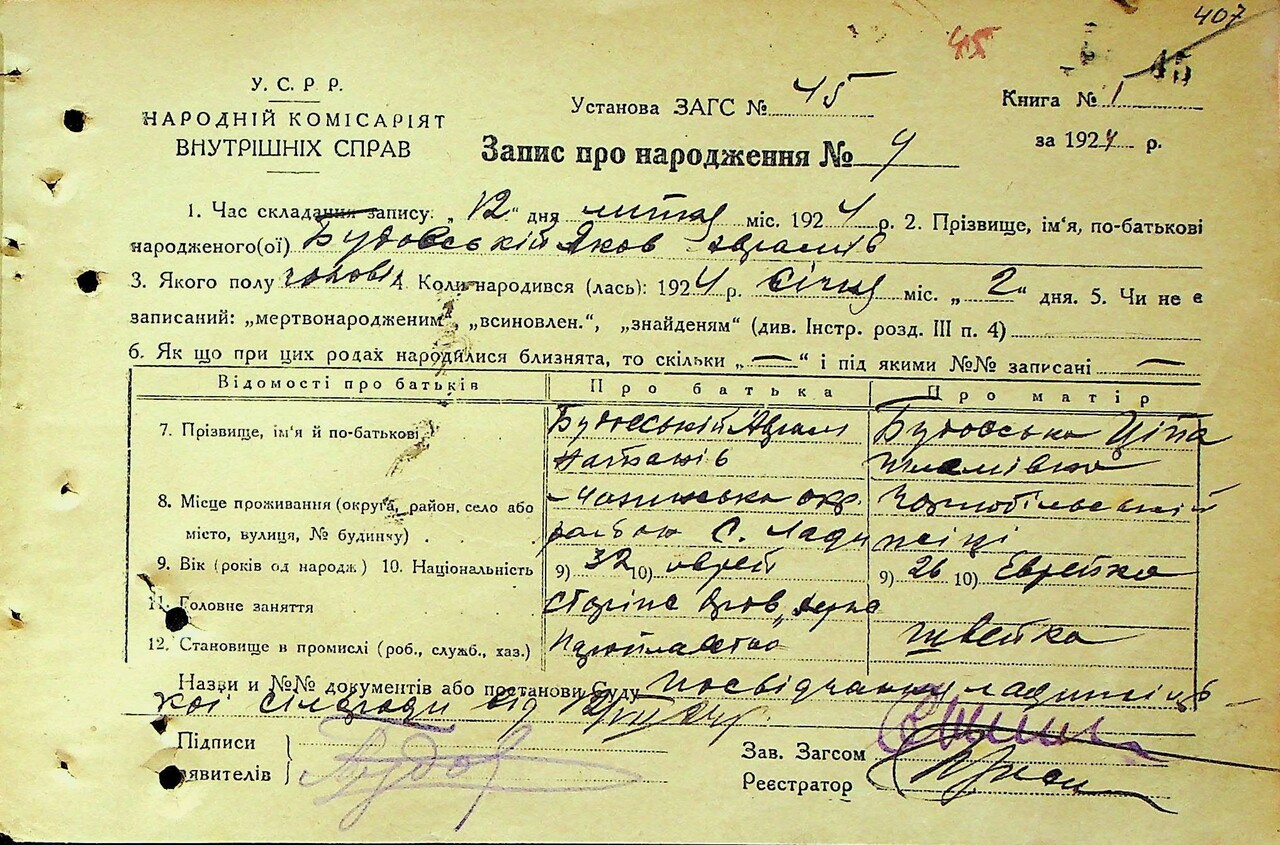 407
45
45
У. С. Р. Р.
НАРОДНІЙ КОМІСАРІЯТ
ВНУТРІШНІХ СПРАВ
Установа ЗАГС № 45
Книга № 1
за 1924 р.
Запис про народження № 9
1. Час складання запису: „12“ дня лютня міс. 1924 р. 2. Прізвище, ім'я, по-батькові
народженого(ої) Будовський Яков Аврамів
3. Якого полу чолов 4. Коли народився (лась): 1924 р. січня міс. „2“ дня. 5. Чи не є
записаний: „мертвонародженим“, „всиновлен.“, „знайденям“ (див. Інстр. розд. III п. 4)
6. Як що при цих родах народилися близнята, то скільки „—“ і під якими №№ записані —
Відомості про батьків Про батька Про матір
7. Прізвище, ім'я й по-батькові Будовський Аврам Будовська Ціпа
Натанів Шлемівна
8. Місце проживання (округа, район, село або окр. Чорнобильський
місто, вулиця, № будинку) . С. Лади жіці
9. Вік (років од народж.) 10. Національність 9) 32 10) еврей 9) 26 10) Еврейка
11. Головне заняття
12. Становище в промислі (роб., служб., хаз.) швейка
Назви и №№ документів або постанови Суду посвідчання
кої сільради від
Підписи
заявителів
Зав. Загсом
Реєстратор